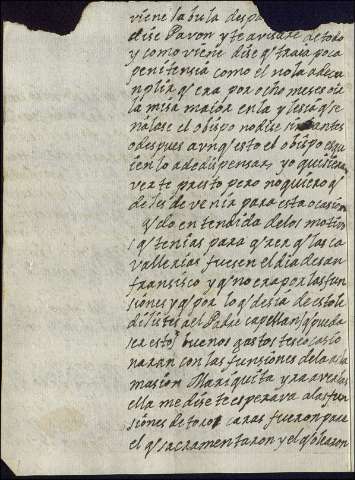 viene la bula despa
dise Pavon y te avisare de todo
y como viene dise qe traia poca
penitensia como el no la a de cu
nplir qe era por ocho meses oir
la misa maior en la yglesia qe se
ñalase el obispo no dise si antes
o despues aunqe esto el obispo es qu
ien lo a de dispensar, yo quisiera
verte presto pero no quiero qe
dejes de venir para esta ocasion
qedo entendida de los motivos
qe tenias para qerer qe las ca
vallerias fuesen el dia de san
fransisco y qe no era por las fun
siones y qe por lo qe desia de estole
di lites al Padre capellan qe pueda
ser estos buenos gastos te ocasio
naran con las funsiones de la
masion Mariquita ya ya
ella me dise te esperava a las fun
siones de toros caras fueron para
el qe sacramentaron y el qe